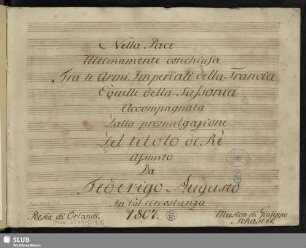 Nella Pace
Ultimamente conchiusa
Fra le Armi Imperiali della Francia
E quelle della Sassonia
Accompagnata
Dalla promulgazione
Del titolo di Rè
Assunto
Da
Federigo Augusto
In tal circostanza
Poesia di Orlandi, 1807. Musica di Giuseppe
Schuster.